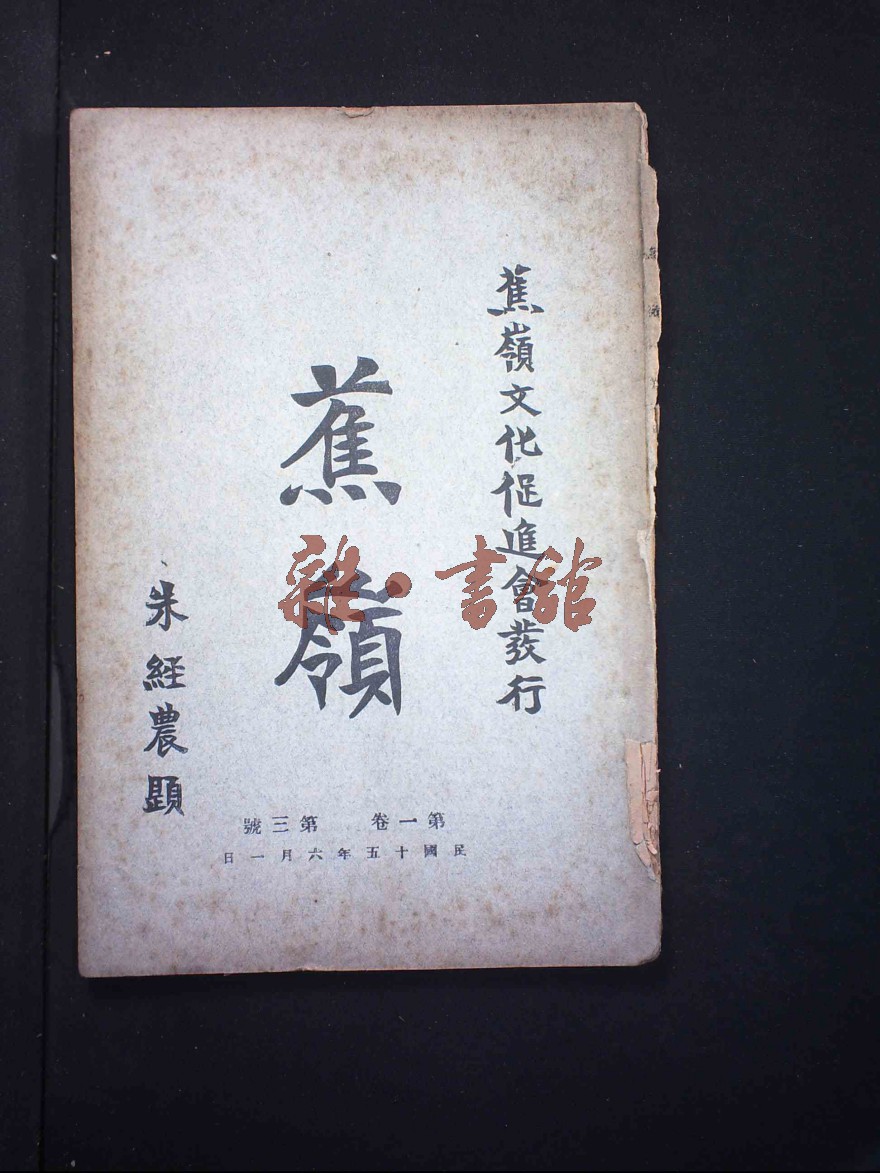 蕉嶺文化促進會發行
蕉嶺
朱經農題
第一卷 第三號
民國十五年六月一日
雜·書舘